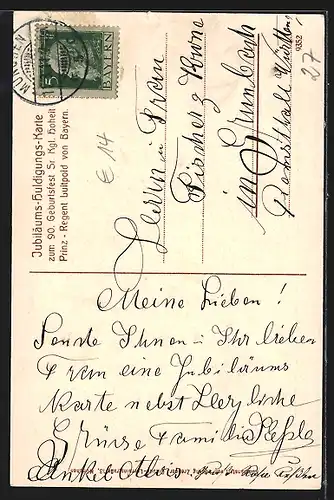 MÜNCHEN
5
BAYERN
9352
27
€ 14
Jubiläums-Huldigungs-Karte
zum 90. Geburtsfest Sr. Kgl. Hoheit
Prinz-Regent Luitpold von Bayern.
Herrn u Frau
Fischer z Krone
in Grunbach
Remsthall Württbg
Meine Lieben!
Sende Ihnen u Ihr lieben
Frau eine Jubiläums
Karte nebst Herzliche
Grüsse Famili Kessle